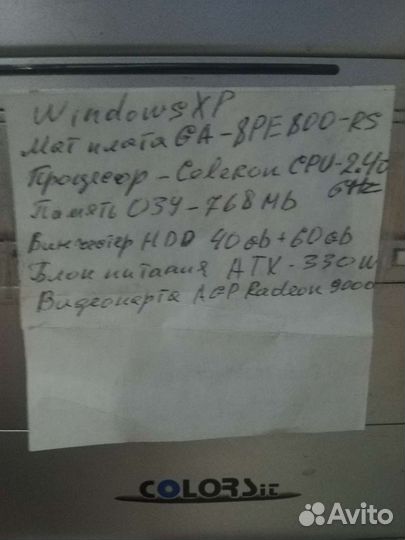 Windows XP
Мат плата GA-8PE800-RS
Процесор - Celeron CPU-2.40
GHz
Память ОЗУ-768Mb
Винчестер HDD 40Gb+60Gb
Блок питания ATX-330W
Видеокарта AGP Radeon 9000
COLORSit
Avito